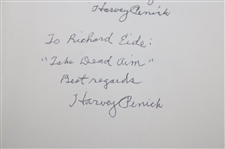 Harvey Penick
To Richard Eide:
"Take Dead Aim"
Best regards
Harvey Penick